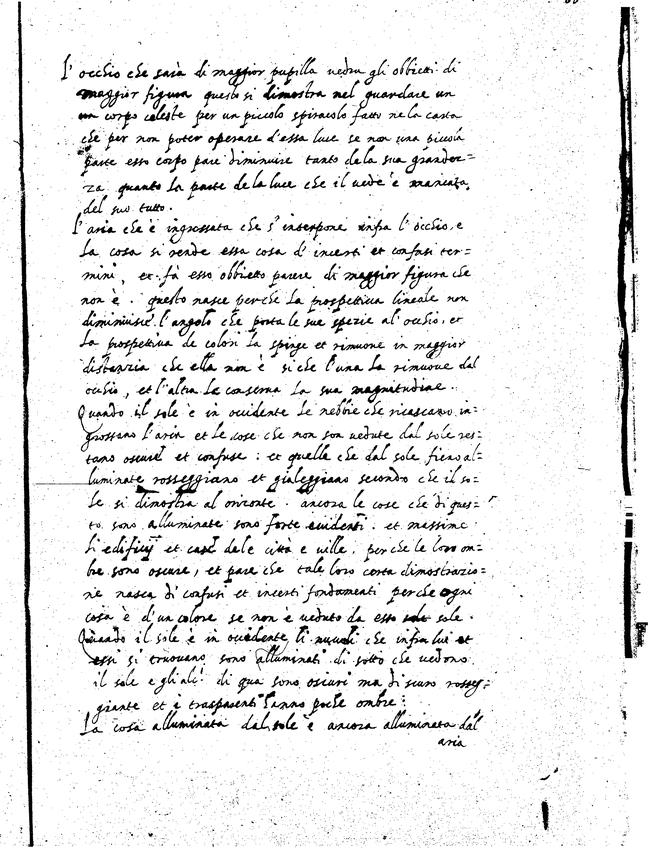 L'occhio che sarà di maggior pupilla vedra gli obbietti di
maggior figura questo si dimostra nel guardare un
un corpo celeste per un piccolo spiracolo fatto ne la carta
che per non poter operare d'essa luce se non una piccola
parte esso corpo pare diminuire tanto de la sua grandez=
za quanto la parte de la luce che il vede è mancata
del suo tutto.
L'aria che è ingrossata che s'interpone infra l'occhio, e
la cosa si rende essa cosa d'incerti et confusi ter=
mini, et fà esso obbietto parere di maggior figura che
non è. questo nasce perche la prospettiva lineale non
diminuisce l'angolo che porta le sue spezie al'occhio, et
la prospettiva de colori la spinge et rimuove in maggior
distanzia che ella non è si che l'una la rimuove dal
occhio, et l'altra le conserva la sua magnitudine.
Quando il sole è in occidente le nebbie che ricascano in=
grossano l'aria et le cose che non son vedute dal sole res=
tano oscure et confuse: et quelle che dal sole fieno al=
luminate rosseggiano et gialeggiano secondo che il so=
le si dimostra al orizonte. ancora le cose che di ques=
to sono alluminate sono forte evidenti. et massime
li edificij et case dele città e ville. perche le loro om=
bre sono oscure, et pare che tale loro certa dimostrazio=
ne nasca di confusi et incerti fondamenti perche ogni
cosa è d'un colore se non è veduto da esso sole.
Quando il sole è in occidente li nuvoli che infra lui et
essi si truovano sono alluminati di sotto che vedono
il sole e gli al: di qua sono oscuri ma di scuro rosseg=
giante et i trasparenti hanno poche ombre.
La cosa alluminata dal sole è ancora alluminata dal
aria